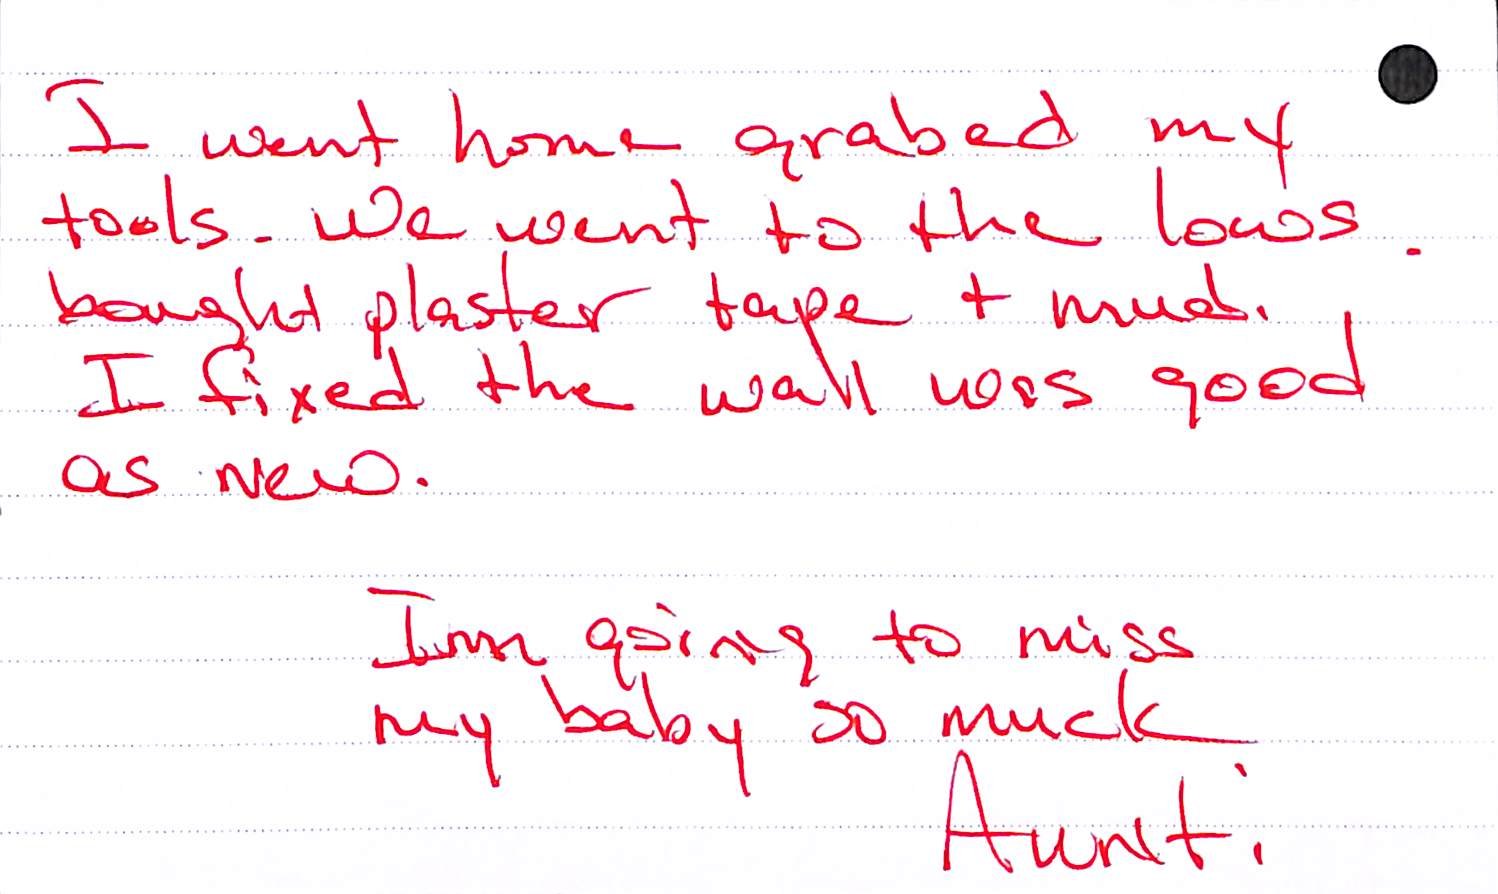 I went home grabed my
tools. We went to the lows.
bought plaster tape + mud.
I fixed the wall was good
as New.
Imm going to miss
my baby so muck
Aunti